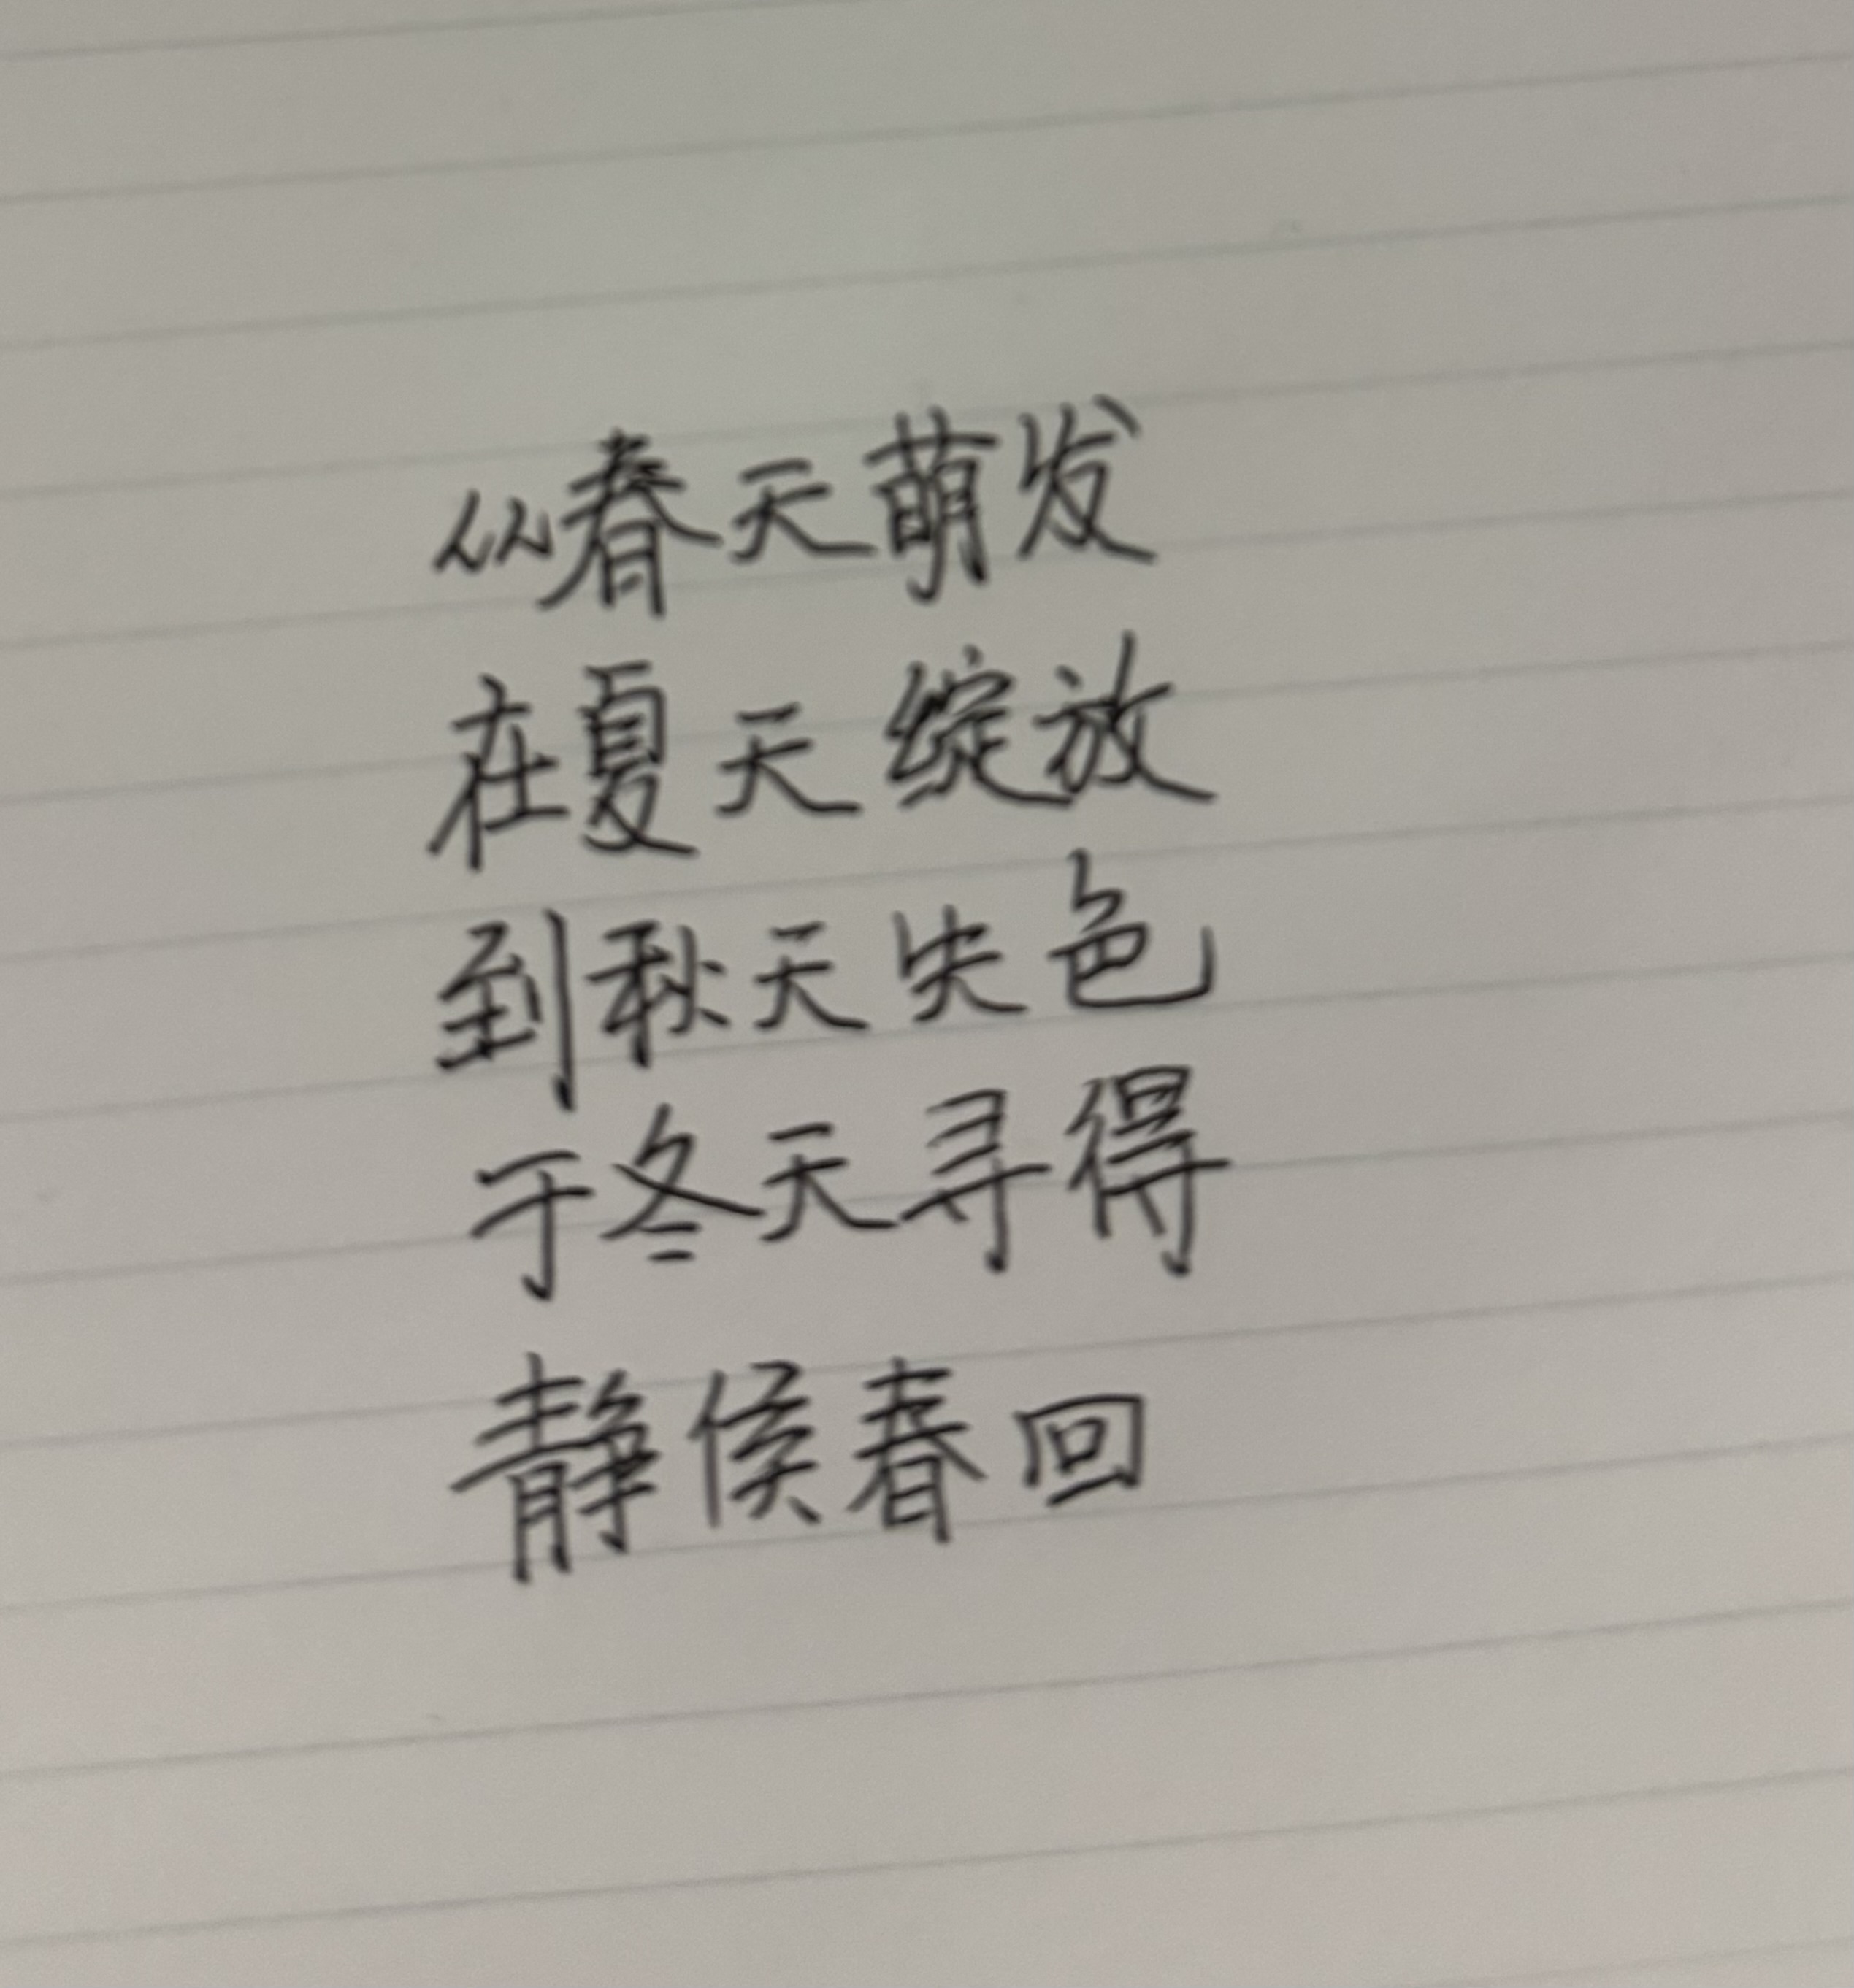 从春天萌发
在夏天绽放
到秋天失色
于冬天寻得
静侯春回